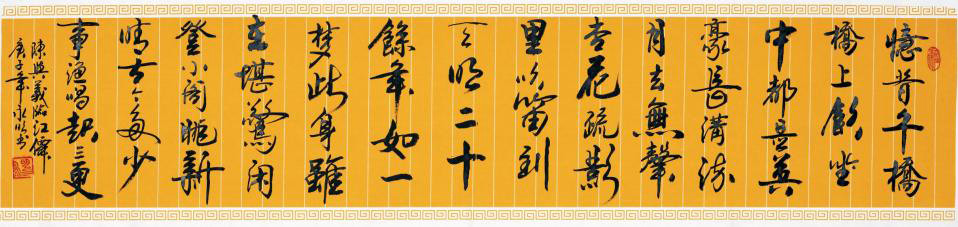 憶昔午橋
橋上飲坐
中都是英
豪長溝流
月去無聲
杏花疏影
里吹笛到
天明二十
餘年如一
夢此身雖
在堪驚閑
登小閣眺新
晴古今多少
事漁唱起三更
陳與義臨江僊
庚子年永書